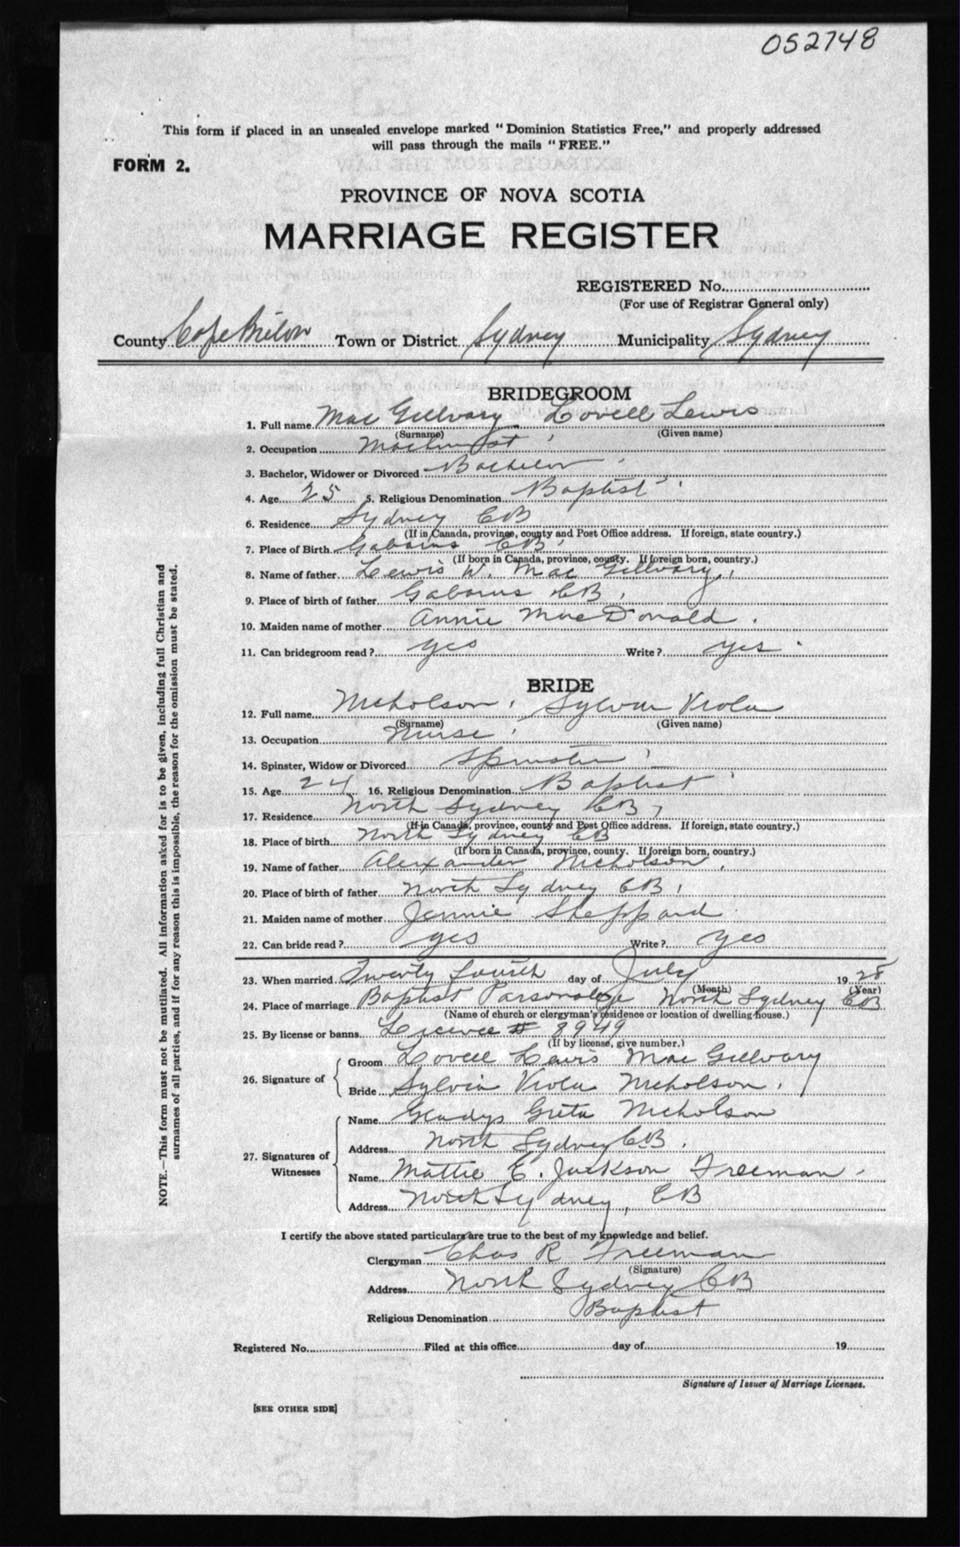 052748
This form if placed in an unsealed envelope marked "Dominion Statistics Free," and properly addressed
will pass through the mails "FREE."
FORM 2.
PROVINCE OF NOVA SCOTIA
MARRIAGE REGISTER
REGISTERED No.
(For use of Registrar General only)
County Cape Breton Town or District Sydney Municipality Sydney
BRIDEGROOM
1. Full name Mac Gillvary Lovell Lewis
(Surname) (Given name)
2. Occupation Machinist
3. Bachelor, Widower or Divorced Bachelor
4. Age 25 5. Religious Denomination Baptist
6. Residence Sydney CB
(If in Canada, province, county and Post Office address. If foreign, state country.)
7. Place of Birth Gabarus CB
(If born in Canada, province, county. If foreign born, country.)
8. Name of father Lewis W. Mac Gillvary
9. Place of birth of father Gabarus CB
10. Maiden name of mother Annie MacDonald
11. Can bridegroom read? yes Write? yes
BRIDE
12. Full name Nicholson, Sylvia Viola
(Surname) (Given name)
13. Occupation Nurse
14. Spinster, Widow or Divorced Spinster
15. Age 24 16. Religious Denomination Baptist
17. Residence North Sydney CB
(If in Canada, province, county and Post Office address. If foreign, state country.)
18. Place of birth North Sydney CB
(If born in Canada, province, county. If foreign born, country.)
19. Name of father Alexander Nicholson
20. Place of birth of father North Sydney CB
21. Maiden name of mother Jennie Sheppard
22. Can bride read? yes Write? yes
23. When married Twenty fourth day of July 1928
(Month) (Year)
24. Place of marriage Baptist Parsonage North Sydney CB
(Name of church or clergyman's residence or location of dwelling house.)
25. By license or banns License # 8949
(If by license, give number.)
26. Signature of
Groom Lovell Lewis Mac Gillvary
Bride Sylvia Viola Nicholson
27. Signatures of Witnesses
Name Gladys Greta Nicholson
Address North Sydney CB.
Name Mattie E. Jackson Freeman
Address North Sydney, CB
I certify the above stated particulars are true to the best of my knowledge and belief.
Clergyman Chas R Freeman
(Signature)
Address North Sydney CB
Religious Denomination Baptist
Registered No. Filed at this office day of 19
Signature of Issuer of Marriage Licenses.
[SEE OTHER SIDE]
NOTE.—This form must not be mutilated. All information asked for is to be given, including full Christian and
surnames of all parties, and if for any reason this is impossible, the reason for the omission must be stated.